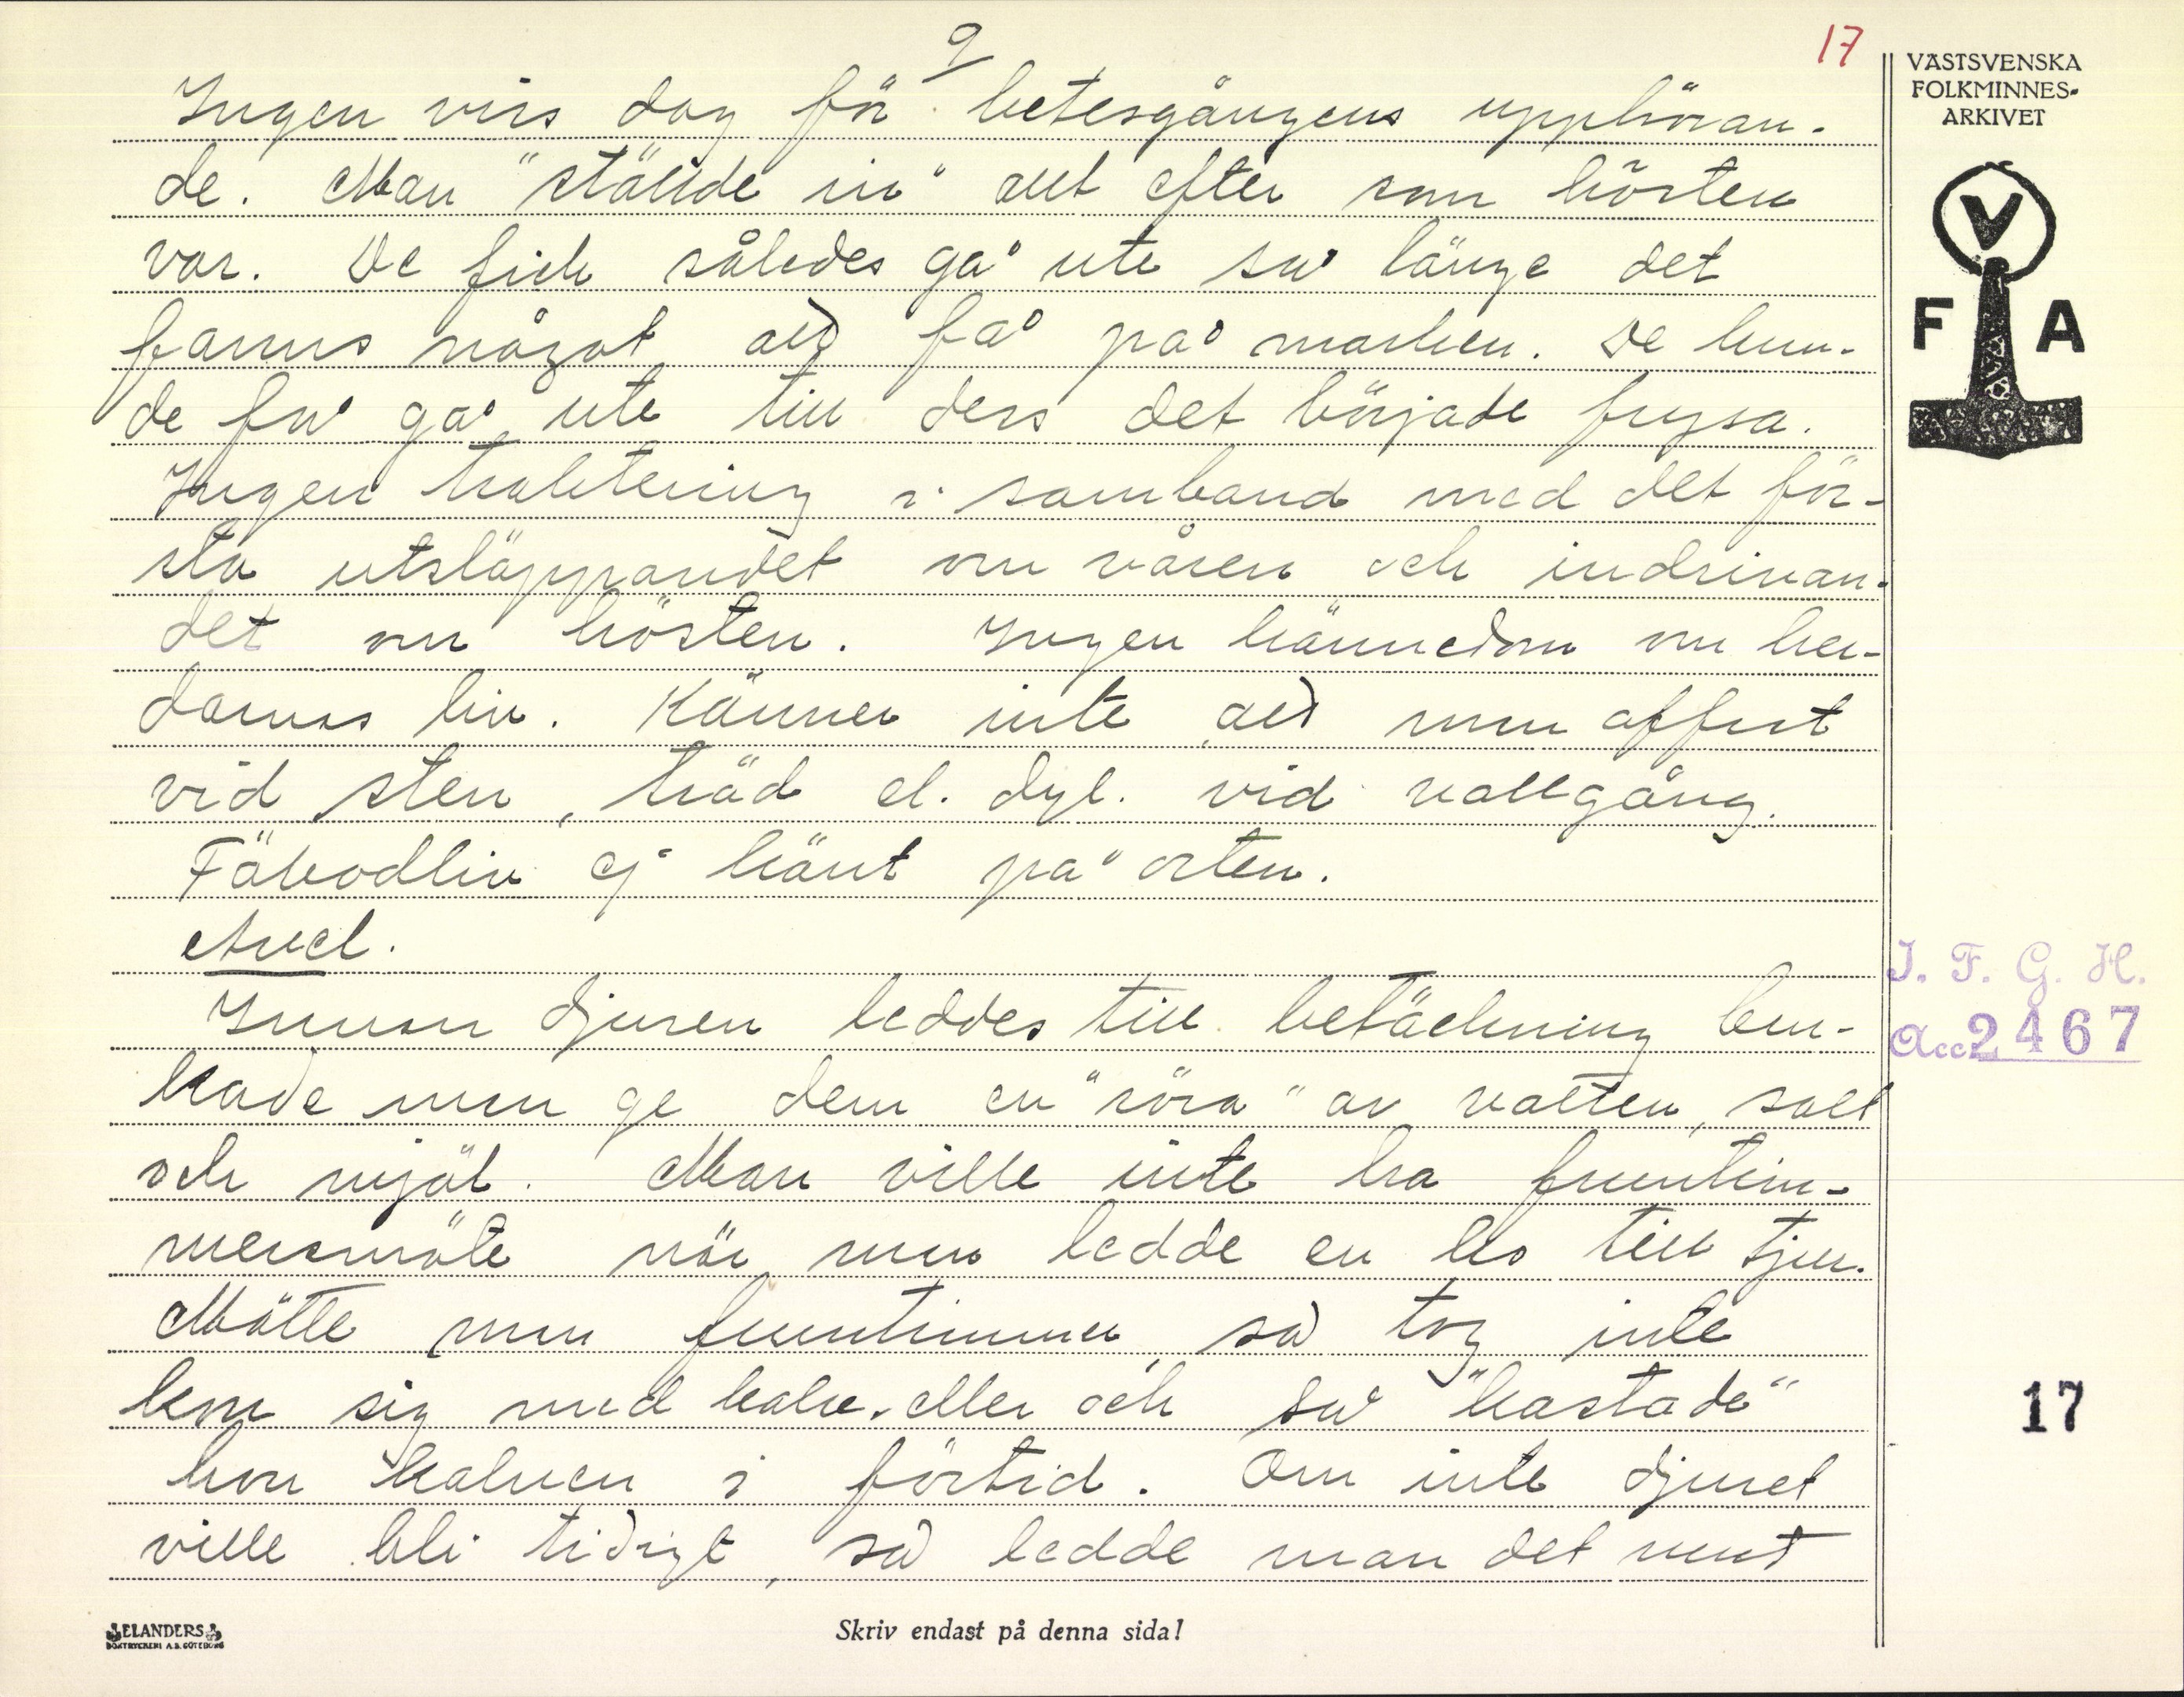 9
17
VÄSTSVENSKA
FOLKMINNES-
ARKIVET
V
F A
Ingen viss dag för betesgångens upphöran-
de. Man "ställde in" allt efter som hösten
var. De fick således gå ute så länge det
fanns något att få på marken. De kun-
de få gå ute till dess det började frysa.
Ingen traktering i samband med det för-
sta utsläppandet om våren och indrivan-
det om hösten. Ingen kännedom om her-
darnas liv. Känner inte att man offrat
vid sten, träd el. dyl. vid vallgång.
Fäbodliv ej känt på orten.
Avel.
Innan djuren leddes till betäckning bru-
kade man ge dem en "röra" av vatten, salt
och mjöl. Man ville inte ha fruntim-
mersmöte när man ledde en ko till tjur.
Mötte man fruntimmer, så tog inte
kon sig med kalv. eller och så "kastade"
hon kalven i förtid. Om inte djuret
ville bli tidigt, så ledde man det runt
I. F. G. H.
Acc 2467
17
ELANDERS
BOKTRYCKERI A.B. GÖTEBORG
Skriv endast på denna sida!